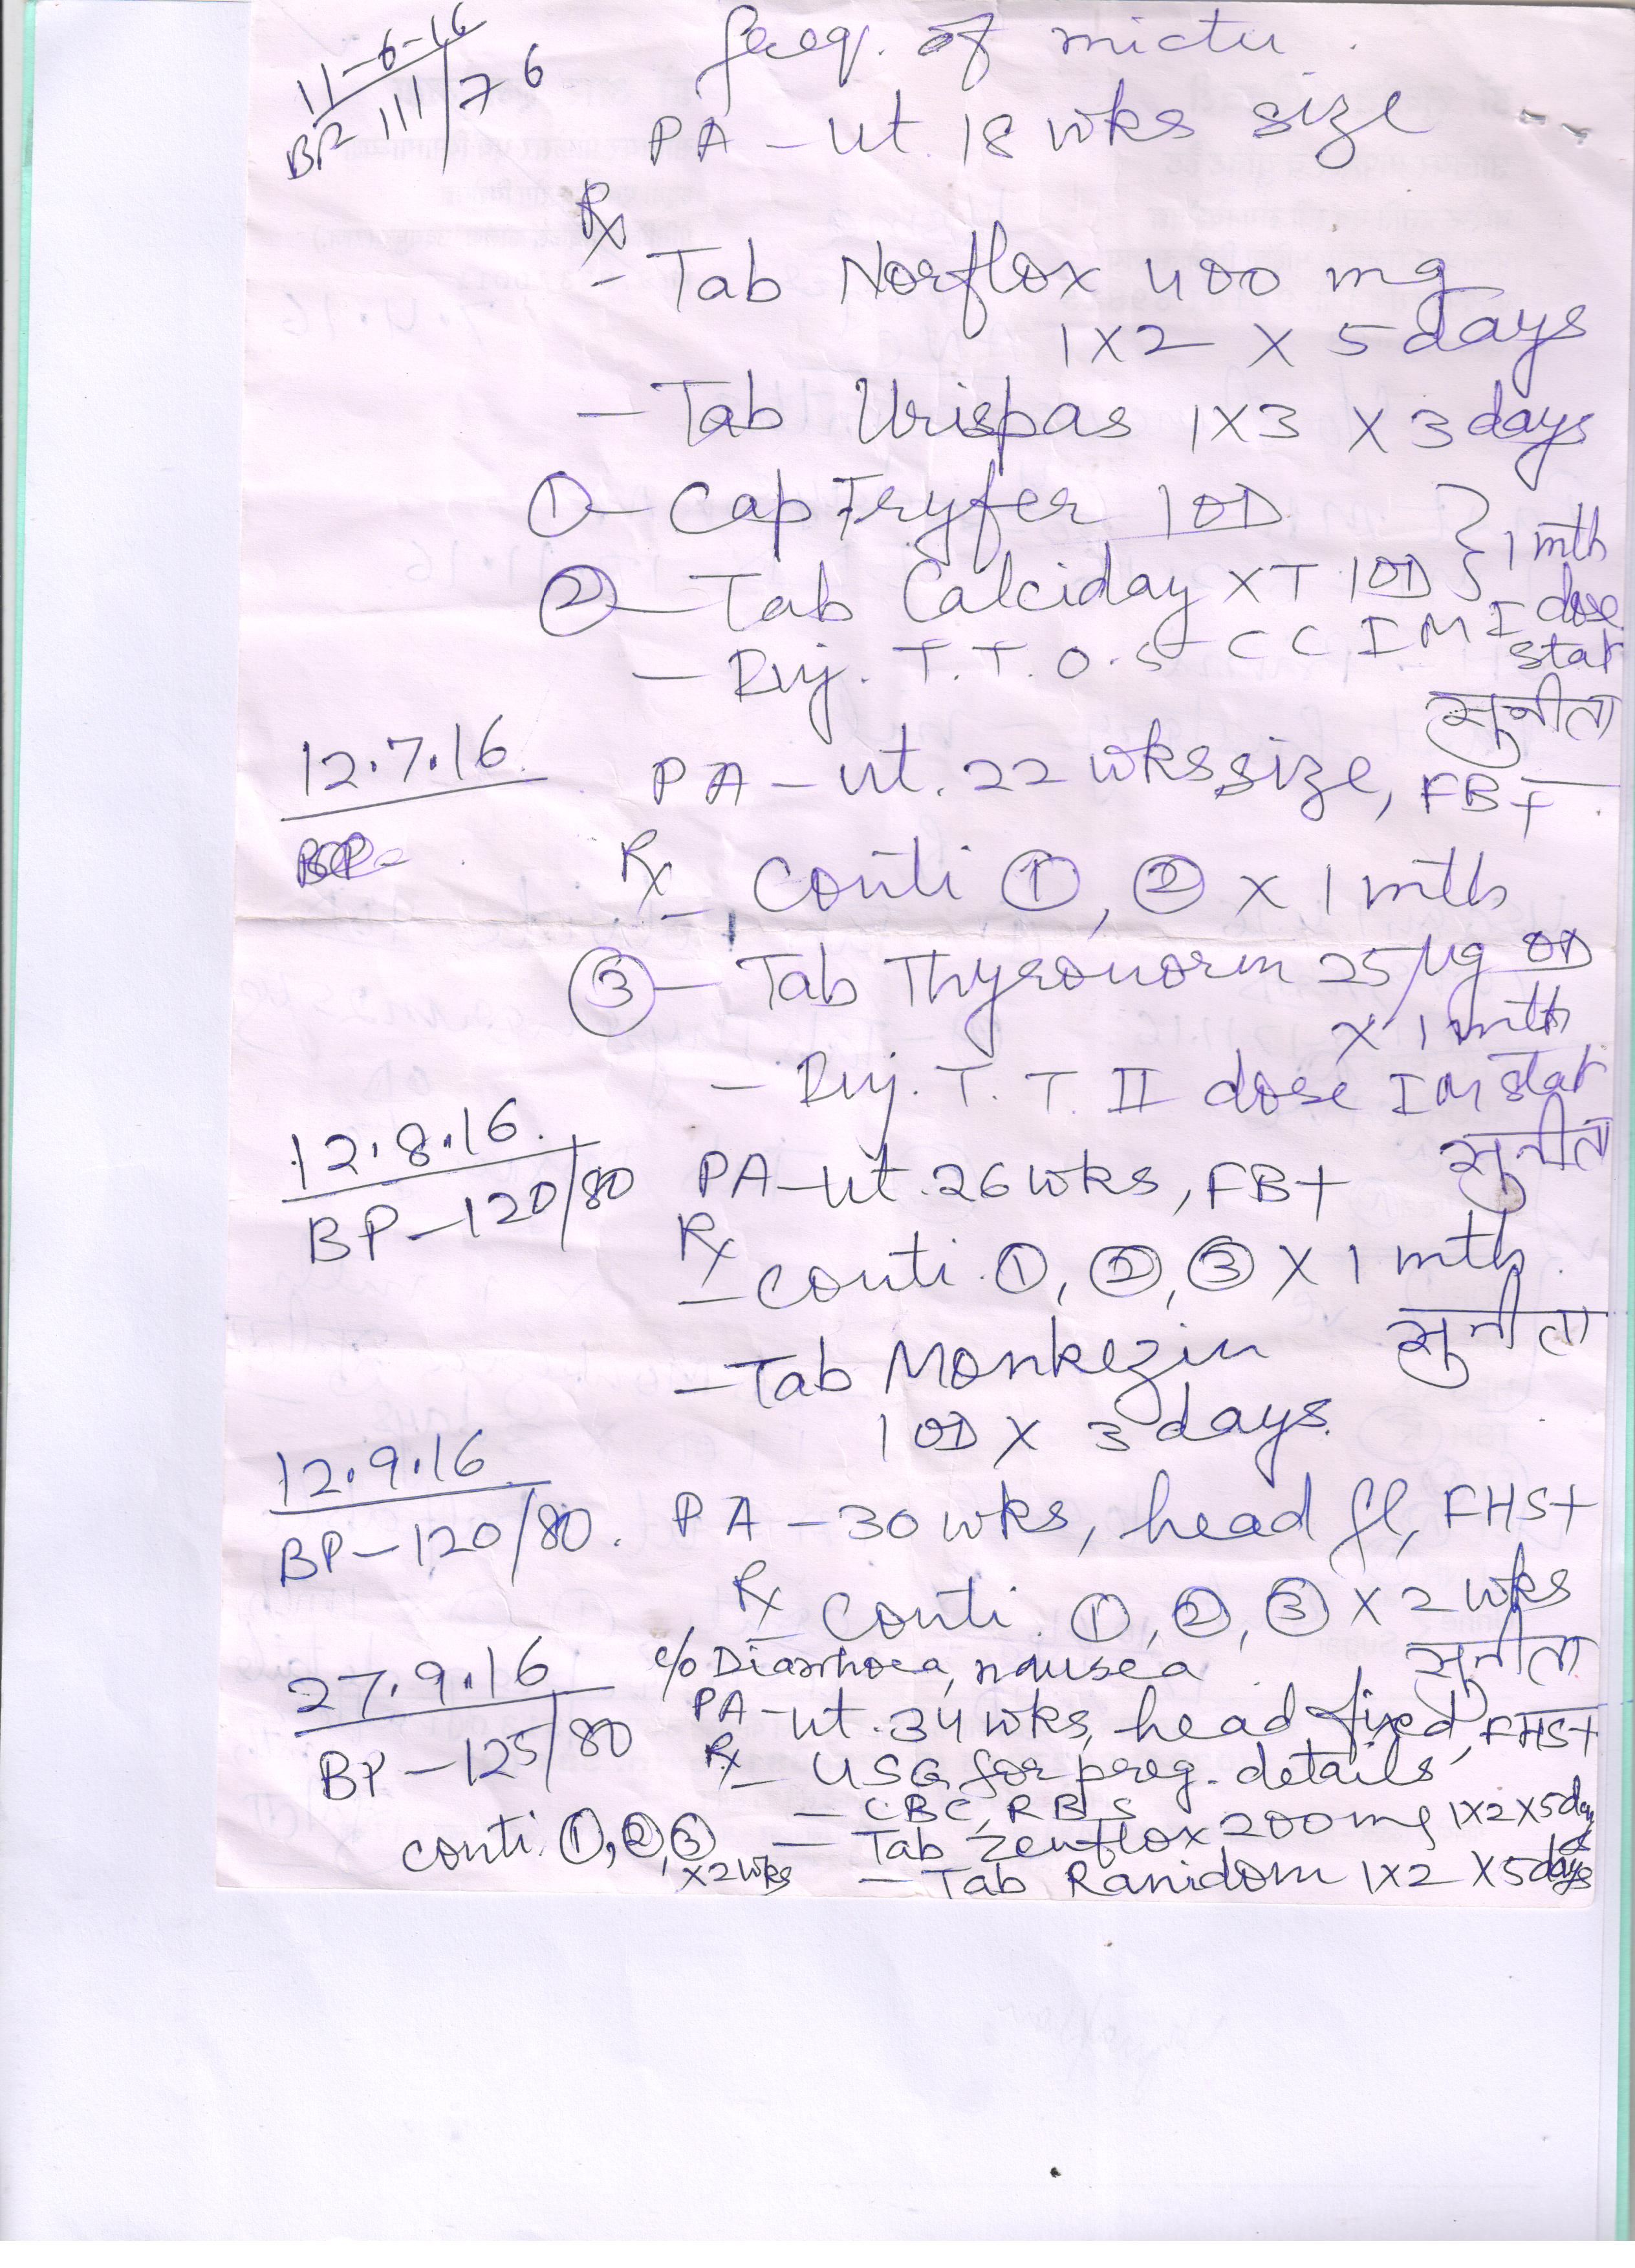 11-6-16
BP 111/76
freq. of mictu.
PA - ut. 18 wks size
Rx
- Tab Norflox 400 mg
1X2 X 5 days
- Tab Urispas 1X3 X 3 days
① - Cap Fryfer 1 OD } 1 mth
② - Tab Calciday XT 1 OD
- Inj. T.T. 0.5 CC IM I dose stat
सुनीता
12.7.16
PA - ut. 22 wks size, FB+
Rx
- Conti ①, ② x 1 mth
③ - Tab Thyronorm 25 µg OD
x 1 mth
- Inj. T.T. II dose IM stat
सुनीता
12.8.16
BP - 120/80
PA - ut. 26 wks, FB+
Rx
- conti. ①, ②, ③ X 1 mth.
सुनीता
- Tab Monkezin
1 OD X 3 days.
12.9.16
BP - 120/80.
PA - 30 wks, head fl, FHS+
Rx
- Conti. ①, ②, ③ x 2 wks
सुनीता
27.9.16
BP - 125/80
c/o Diarrhoea, nausea
PA - ut. 34 wks, head fixed, FHS+
Rx - USG for preg. details
- CBC, RBS
- Tab Zenflox 200 mg 1X2 X 5 days
- Tab Ranidom 1X2 X 5 days
conti. ①, ②, ③
x 2 wks